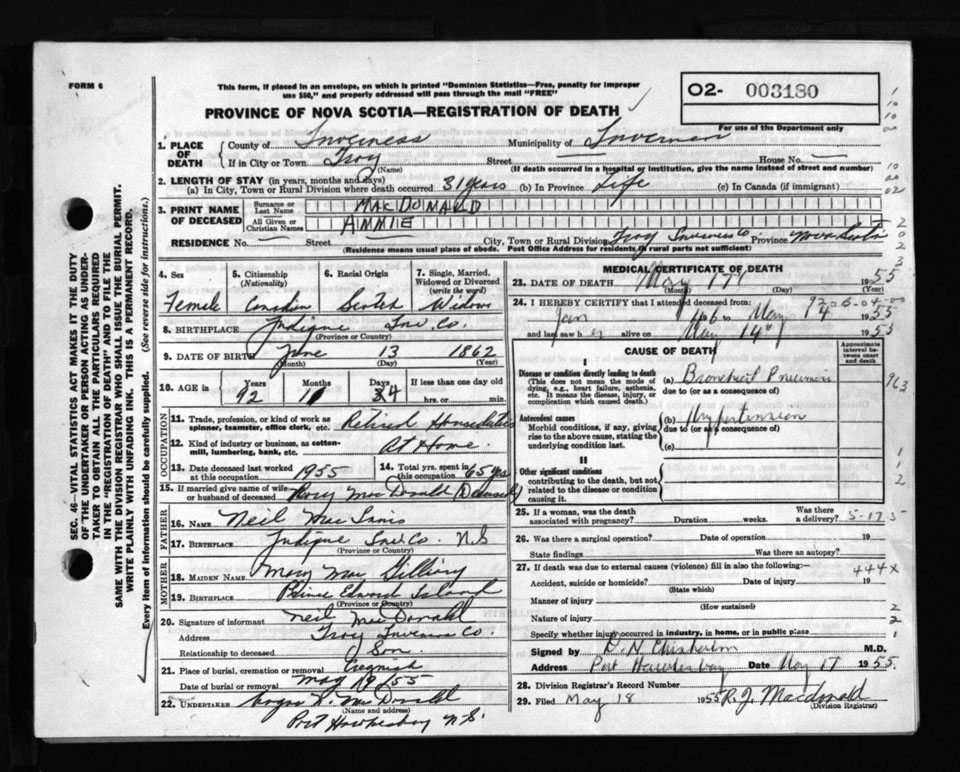 FORM 6
This form, if placed in an envelope, on which is printed "Dominion Statistics—Free, penalty for improper
use $50," and properly addressed will pass through the mail "FREE"
O2- 003180
PROVINCE OF NOVA SCOTIA—REGISTRATION OF DEATH
For use of the Department only
1. PLACE OF DEATH
County of Inverness Municipality of Inverness
If in City or Town Troy Street House No.
(Name) (If death occurred in a hospital or institution, give the name instead of street and number)
2. LENGTH OF STAY (in years, months and days)
(a) In City, Town or Rural Division where death occurred 31 years (b) In Province Life (c) In Canada (if immigrant)
3. PRINT NAME OF DECEASED
Surname or Last Name MACDONALD
All Given or Christian Names AMMIE
RESIDENCE No. Street City, Town or Rural Division Troy Inverness Co. Province Nova Scotia
(Residence means usual place of abode. Post Office Address for residents in rural parts not sufficient)
4. Sex 5. Citizenship (Nationality) 6. Racial Origin 7. Single, Married, Widowed or Divorced (write the word)
Female Canadian Scotch Widow
8. BIRTHPLACE Judique Inv. Co.
(Province or Country)
9. DATE OF BIRTH June 13 1862
(Month) (Day) (Year)
10. AGE in Years Months Days If less than one day old
92 11 34 hrs. or min.
OCCUPATION
11. Trade, profession, or kind of work as spinner, teamster, office clerk, etc. Retired Housedutie
12. Kind of industry or business, as cotton-mill, lumbering, bank, etc. At Home.
13. Date deceased last worked at this occupation 1955 14. Total yrs. spent in this occupation 65 yrs
15. If married give name of wife or husband of deceased Rory MacDonald (Deceased)
FATHER
16. NAME Neil MacInnis
17. BIRTHPLACE Judique Inv. Co. N.S
(Province or Country)
MOTHER
18. MAIDEN NAME Mary Mac
19. BIRTHPLACE Prince Edward Island
(Province or Country)
20. Signature of informant Neil MacDonald
Address Troy Inverness Co.
Relationship to deceased Son.
21. Place of burial, cremation or removal Creignish
Date of burial or removal May 19/55
22. UNDERTAKER MacDonald
(Name and address)
Port Hawkesbury N.S.
MEDICAL CERTIFICATE OF DEATH
23. DATE OF DEATH May 17 1955
(Month) (Day) (Year)
24. I HEREBY CERTIFY that I attended deceased from
Jan 1946 to May 14 1955
and last saw her alive on May 14 1955
CAUSE OF DEATH
Approximate interval between onset and death
I
Disease or condition directly leading to death
(This does not mean the mode of dying, e.g., heart failure, asthenia, etc. It means the disease, injury, or complication which caused death.)
(a) Bronchial Pneumonia
due to (or as a consequence of)
Antecedent causes
Morbid conditions, if any, giving rise to the above cause, stating the underlying condition last.
(b) Hypertension
due to (or as a consequence of)
(c)
II
Other significant conditions
contributing to the death, but not related to the disease or condition causing it.
25. If a woman, was the death associated with pregnancy? Duration weeks. Was there a delivery?
5-17-5
26. Was there a surgical operation? Date of operation 19
State findings Was there an autopsy?
27. If death was due to external causes (violence) fill in also the following:—
444X
Accident, suicide or homicide? Date of injury 19
(State which)
Manner of injury
(How sustained)
Nature of injury
Specify whether injury occurred in industry, in home, or in public place
Signed by D. N. Chisholm M.D.
Address Port Hawkesbury Date May 17 1955.
28. Division Registrar's Record Number
29. Filed May 18 1955 R. J. Macdonald
(Division Registrar)
SEC. 46—VITAL STATISTICS ACT MAKES IT THE DUTY
OF THE UNDERTAKER OR PERSON ACTING AS UNDER-
TAKER TO OBTAIN ALL THE PARTICULARS REQUIRED
IN THE "REGISTRATION OF DEATH" AND TO FILE THE
SAME WITH THE DIVISION REGISTRAR WHO SHALL ISSUE THE BURIAL PERMIT.
WRITE PLAINLY WITH UNFADING INK. THIS IS A PERMANENT RECORD.
Every item of information should be carefully supplied. (See reverse side for instructions.)